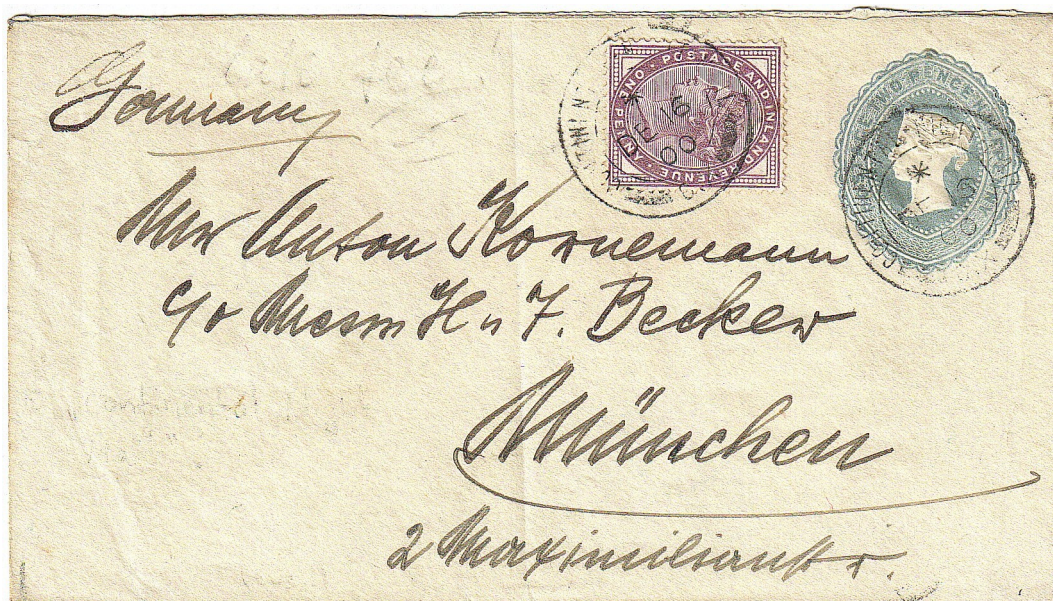 Germany
POSTAGE AND INLAND REVENUE · ONE PENNY
TWO PENCE HALFPENNY
DE 16
00
Mr Anton Kornemann
c/o Messrs H u F. Becker
München
2 Maximilianstr.